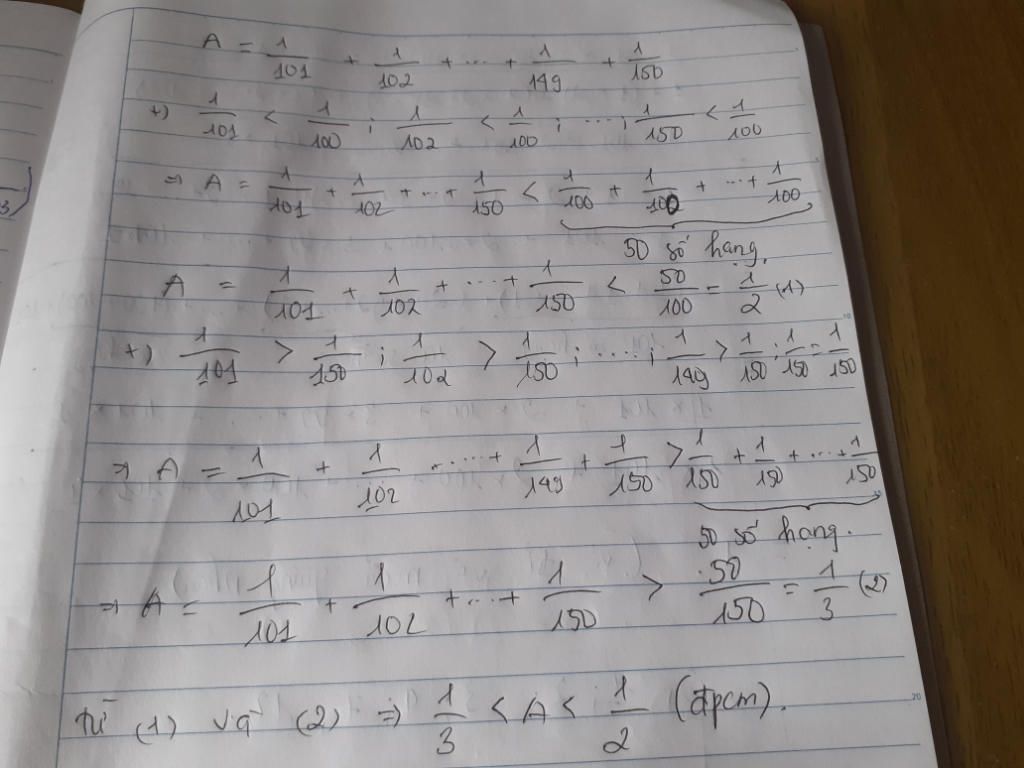 A = 1/101 + 1/102 + ... + 1/149 + 1/150
+) 1/101 < 1/100 ; 1/102 < 1/100 ; ...; 1/150 < 1/100
⇒ A = 1/101 + 1/102 + ... + 1/150 < 1/100 + 1/100 + ... + 1/100
50 số hạng.
A = 1/101 + 1/102 + ... + 1/150 < 50/100 = 1/2 (1)
+) 1/101 > 1/150 ; 1/102 > 1/150 ; ....; 1/149 > 1/150 ; 1/150 = 1/150
⇒ A = 1/101 + 1/102 ..... + 1/149 + 1/150 > 1/150 + 1/150 + ... + 1/150
50 số hạng.
⇒ A = 1/101 + 1/102 + ... + 1/150 > 50/150 = 1/3 (2)
Từ (1) và (2) ⇒ 1/3 < A < 1/2 (đpcm).